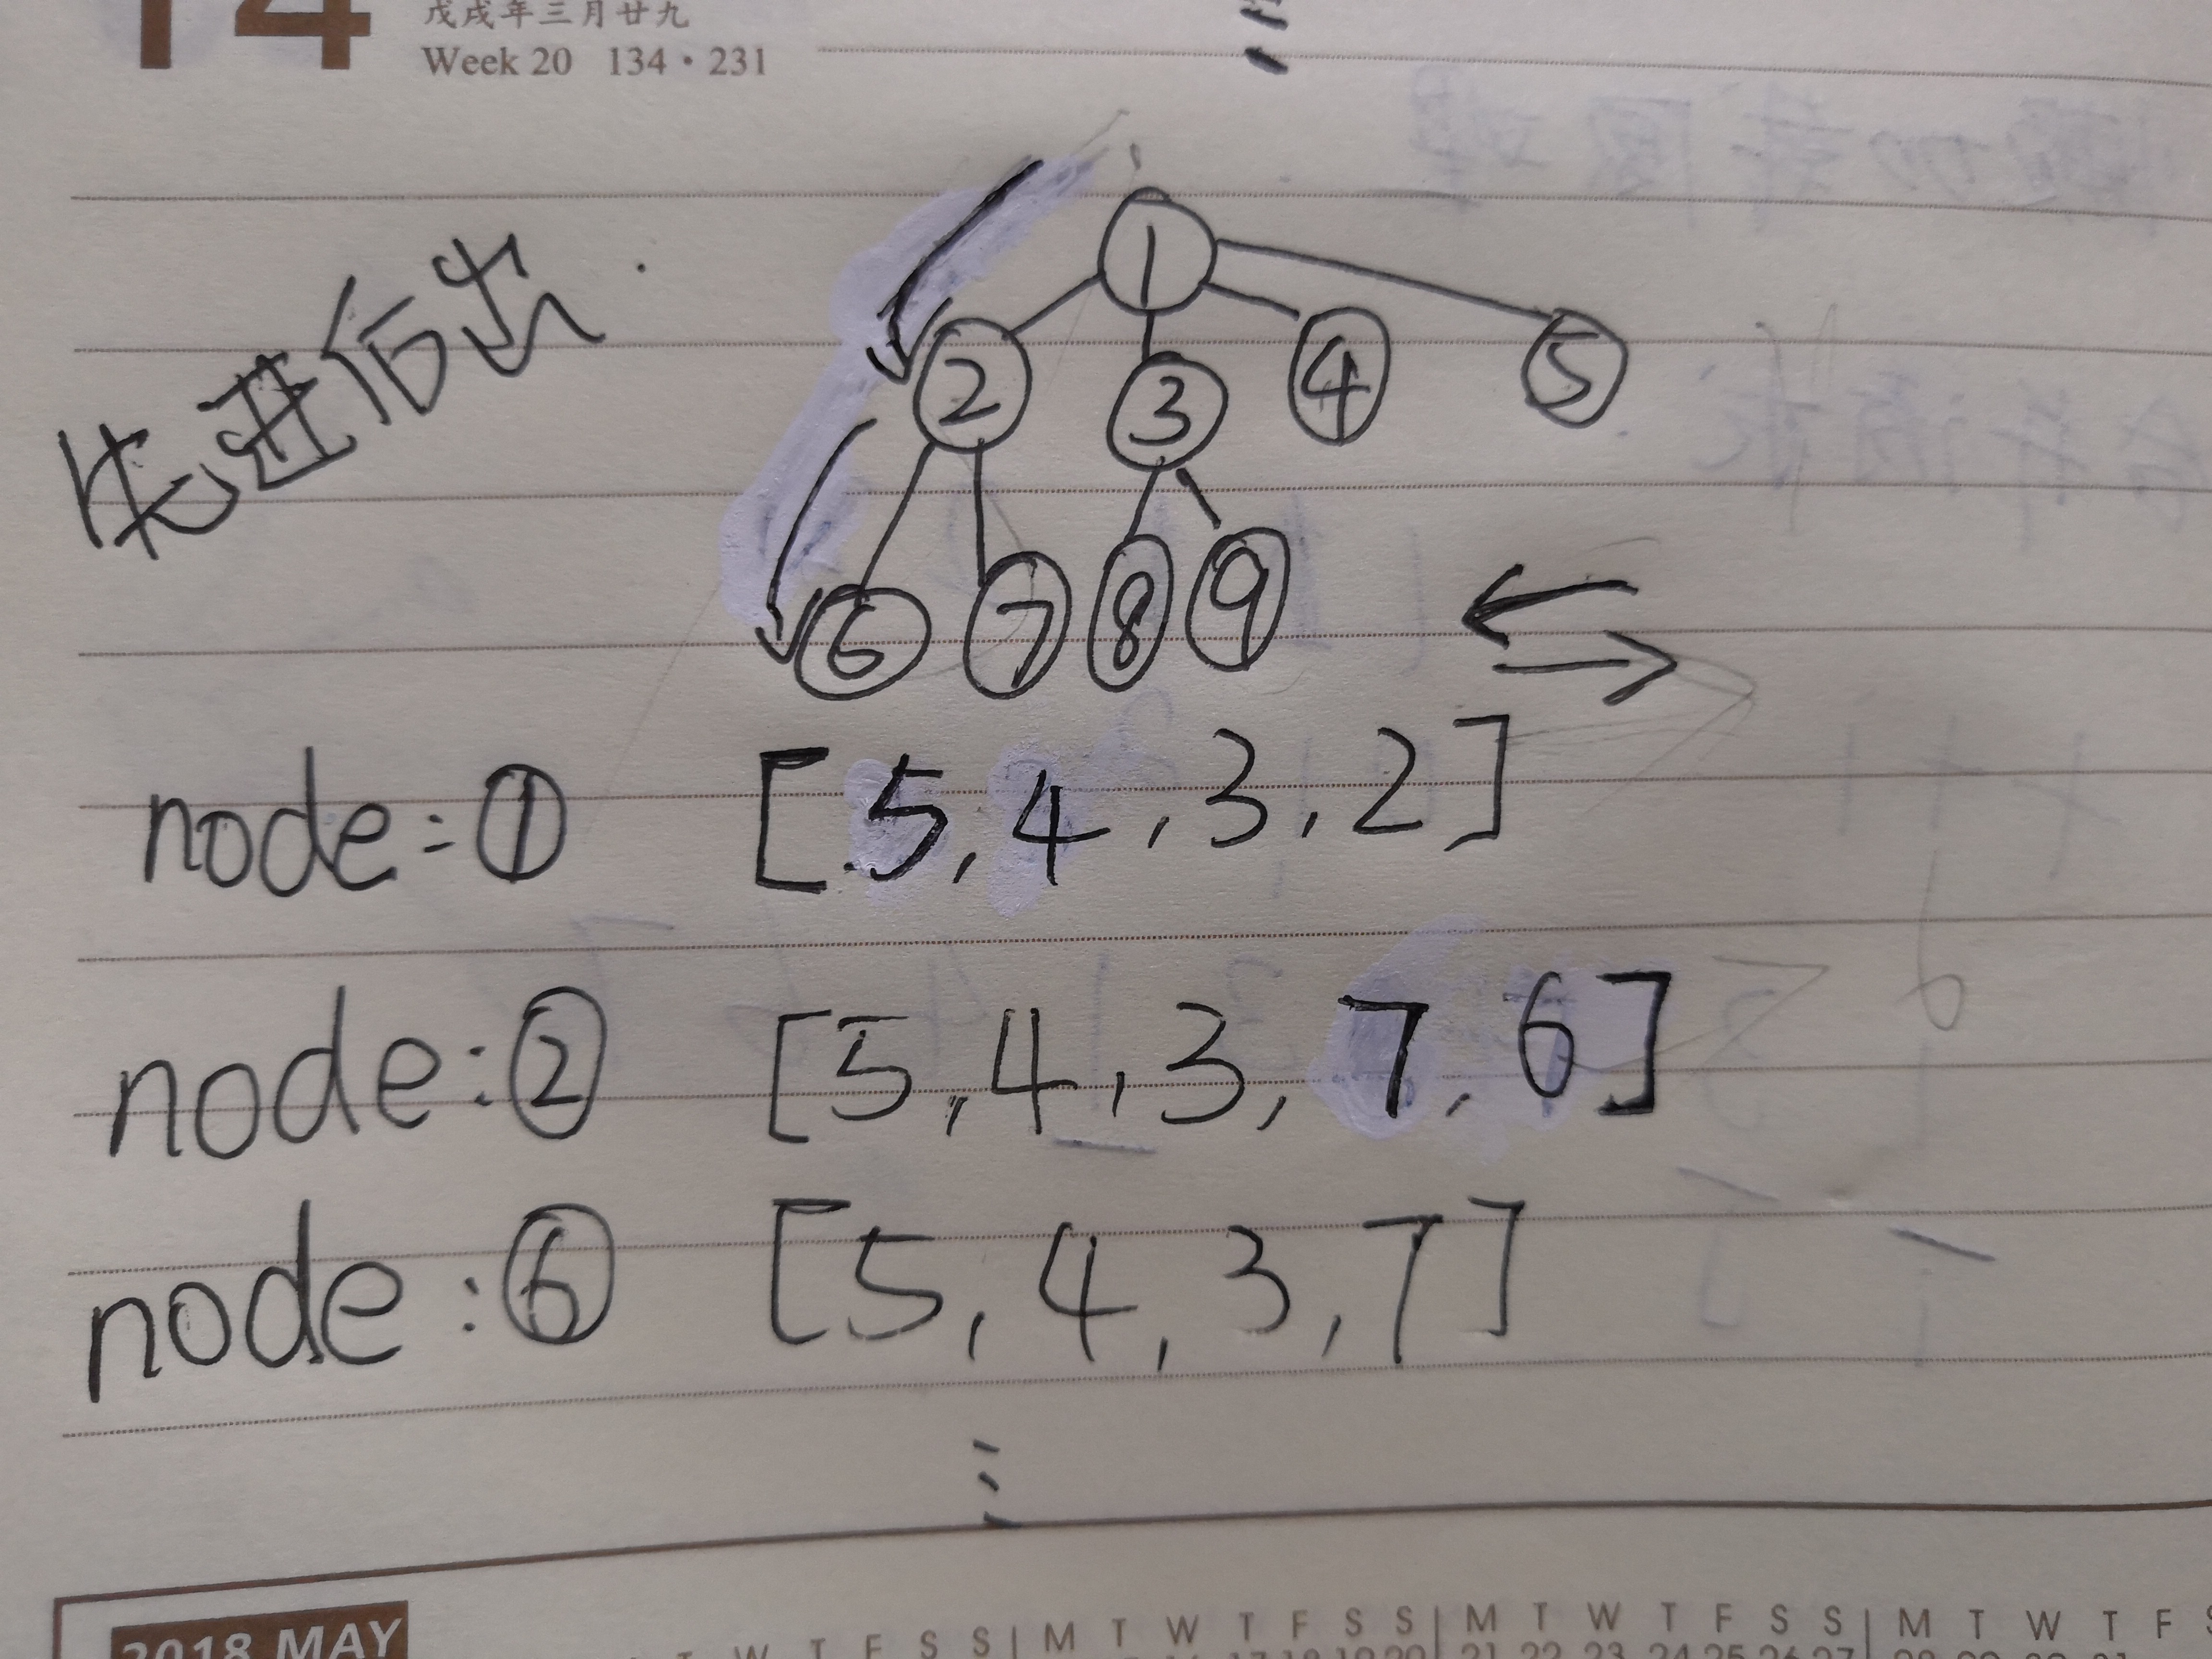 14
戊戌年三月廿九
Week 20 134·231
先进后出
1
2 3 4 5
6 7 8 9
node:① [5,4,3,2]
node:② [5,4,3,7,6]
node:⑥ [5,4,3,7]
2018 MAY
T W T F S S | M T W T F S S | M T W T F S S | M T W T F S
21 22 23 24 25 26 27